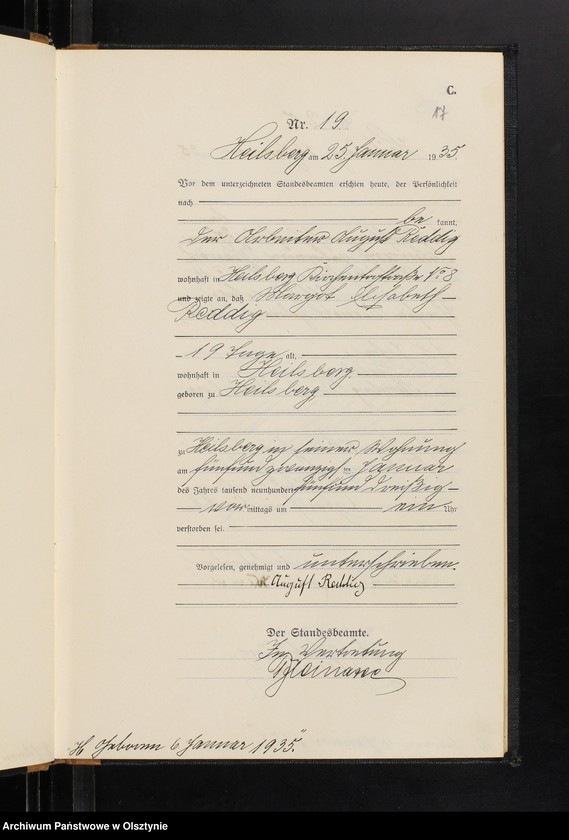 C.
17
Nr. 19
Heilsberg am 25. Januar 1935.
Vor dem unterzeichneten Standesbeamten erschien heute, der Persönlichkeit
nach
be kannt,
der Arbeiter August Reddig
wohnhaft in Heilsberg 8
und zeigte an, daß Margot Elisabeth
Reddig
19 Tage alt,
wohnhaft in Heilsberg
geboren zu Heilsberg
zu Heilsberg in seiner Wohnung
am fünfund zwanzigsten Januar
des Jahres tausend neunhundert fünfund dreißig
vor mittags um ein Uhr
verstorben sei.
Vorgelesen, genehmigt und unterschrieben.
August Reddig
Der Standesbeamte.
In Vertretung
geboren 6. Januar 1935.
Archiwum Państwowe w Olsztynie